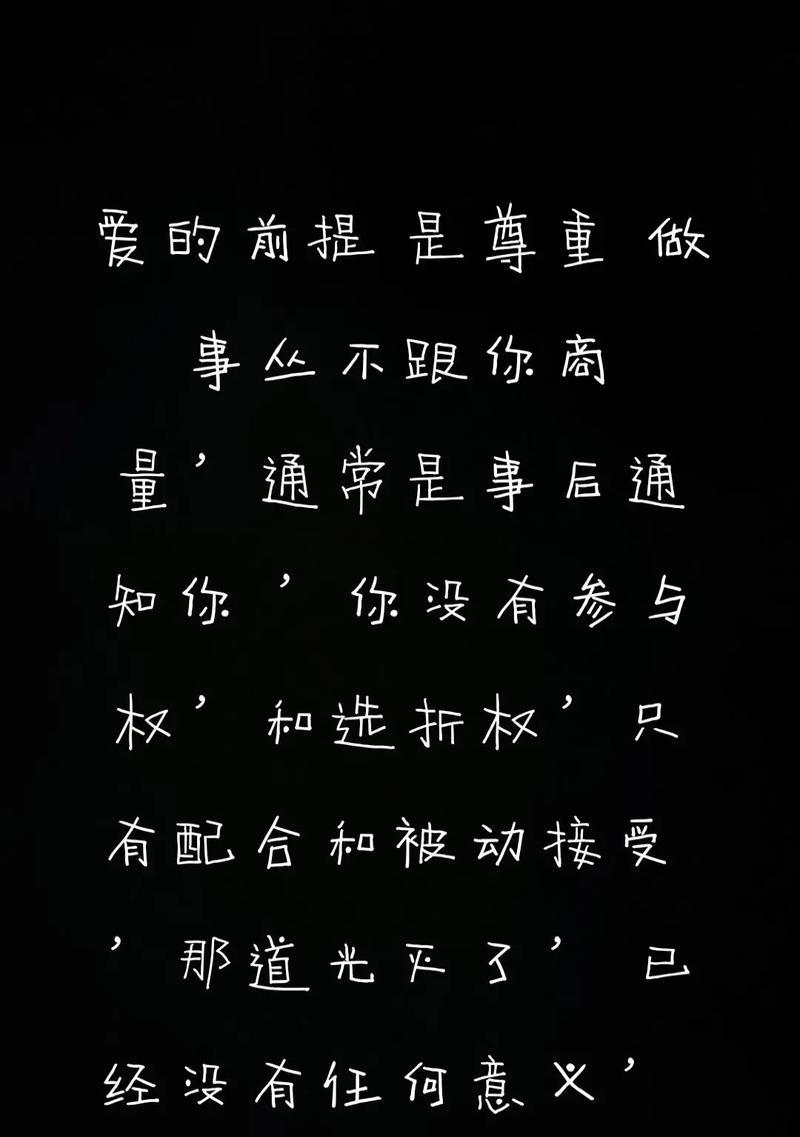 爱的前提 是尊重 做
事丛不跟你商
量’通常是事后通
知你’你没有参与
权’和选折权’只
有配合和被动接受
’那道光灭了’已
经没有任何意义’